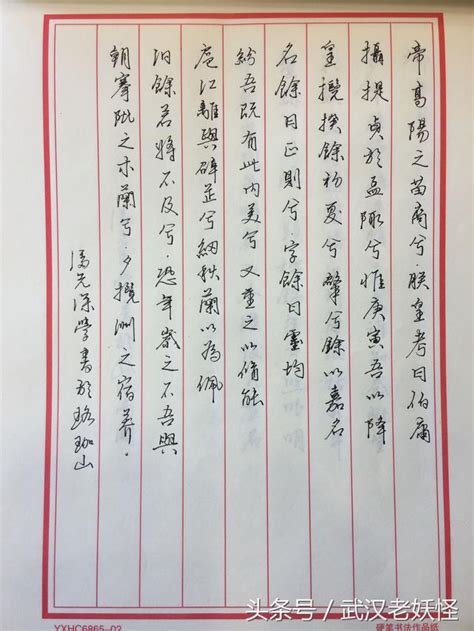 帝高陽之苗裔兮，朕皇考曰伯庸
攝提貞於孟陬兮，惟庚寅吾以降
皇攬揆餘初度兮，肇兮餘以嘉名
名餘曰正則兮，字餘曰靈均
紛吾既有此內美兮，又重之以脩能
扈江離與辟芷兮紉秋蘭以為佩
汩餘若將不及兮，恐年歲之不吾與
朝搴阰之木蘭兮，夕攬洲之宿莽。
學書於珞珈山
YXHC6865-02
硬笔书法作品纸
头条号 / 武汉老妖怪